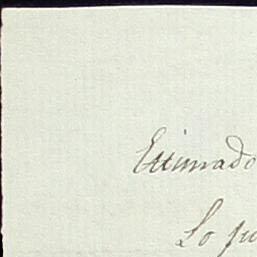 Estimado
Lo